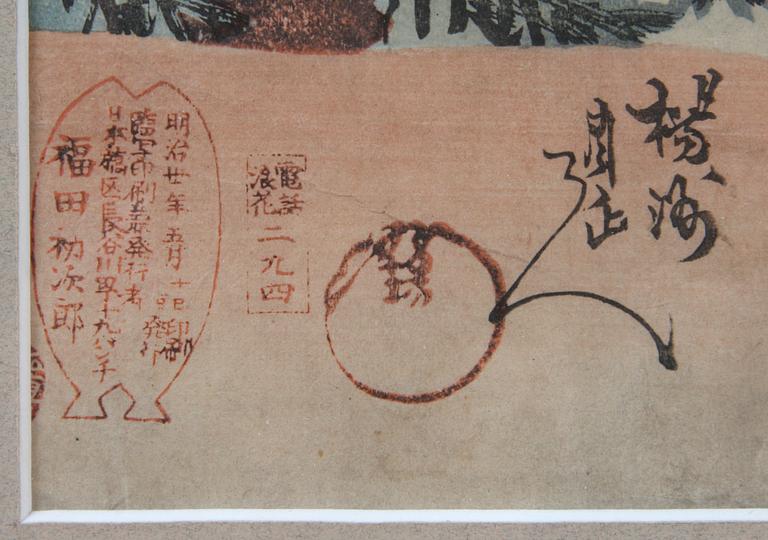 楊洲
周延
電話
浪花
二九四
明治廿年五月十
臨写印刷兼発行者
日本橋区長谷川町十九バンチ
福田初次郎